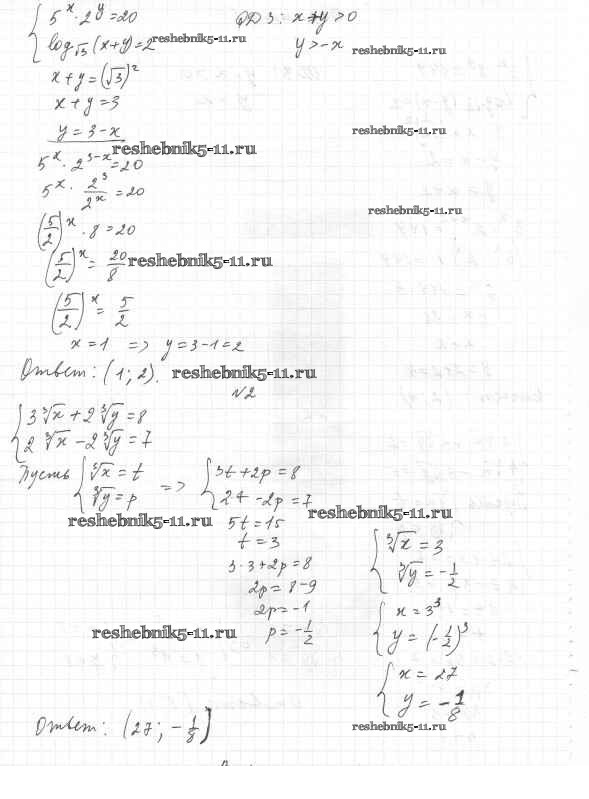 { 5^x · 2^y = 20   ОДЗ: x+y>0
log_√3 (x+y) = 2   y > -x
reshebnik5-11.ru
reshebnik5-11.ru
x+y = (√3)^2
x+y = 3
y = 3-x
reshebnik5-11.ru
reshebnik5-11.ru
5^x · 2^(3-x) = 20
5^x · 2^3/2^x = 20
reshebnik5-11.ru
(5/2)^x · 8 = 20
(5/2)^x = 20/8
reshebnik5-11.ru
(5/2)^x = 5/2
x = 1 => y = 3-1 = 2
Ответ: (1; 2).
reshebnik5-11.ru
№2
{ 3∛x + 2∛y = 8
2∛x - 2∛y = 7
Пусть { ∛x = t => { 3t + 2p = 8
∛y = p   2t - 2p = 7
reshebnik5-11.ru
reshebnik5-11.ru
5t = 15
t = 3
3·3 + 2p = 8
2p = 8-9
2p = -1
p = -1/2
reshebnik5-11.ru
{ ∛x = 3
∛y = -1/2
{ x = 3^3
y = (-1/2)^3
{ x = 27
y = -1/8
Ответ: (27; -1/8)
reshebnik5-11.ru